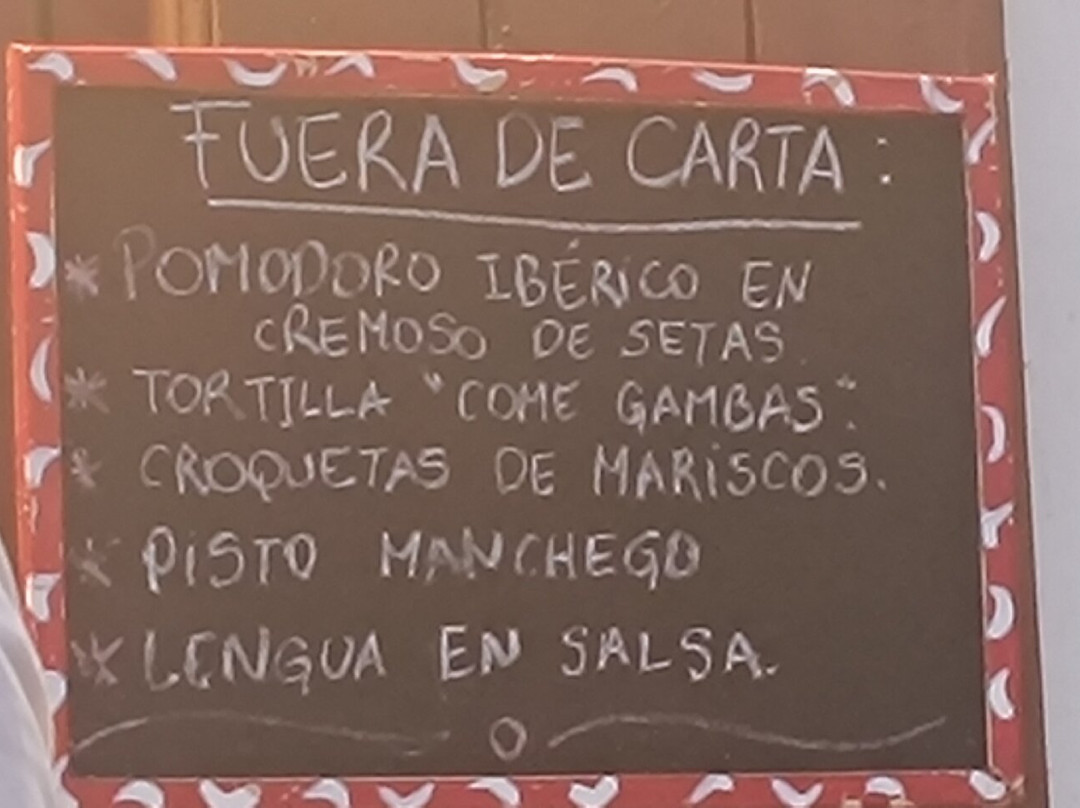 FUERA DE CARTA:
* POMODORO IBÉRICO EN
CREMOSO DE SETAS.
* TORTILLA "COME GAMBAS".
* CROQUETAS DE MARISCOS.
* PISTO MANCHEGO
* LENGUA EN SALSA.